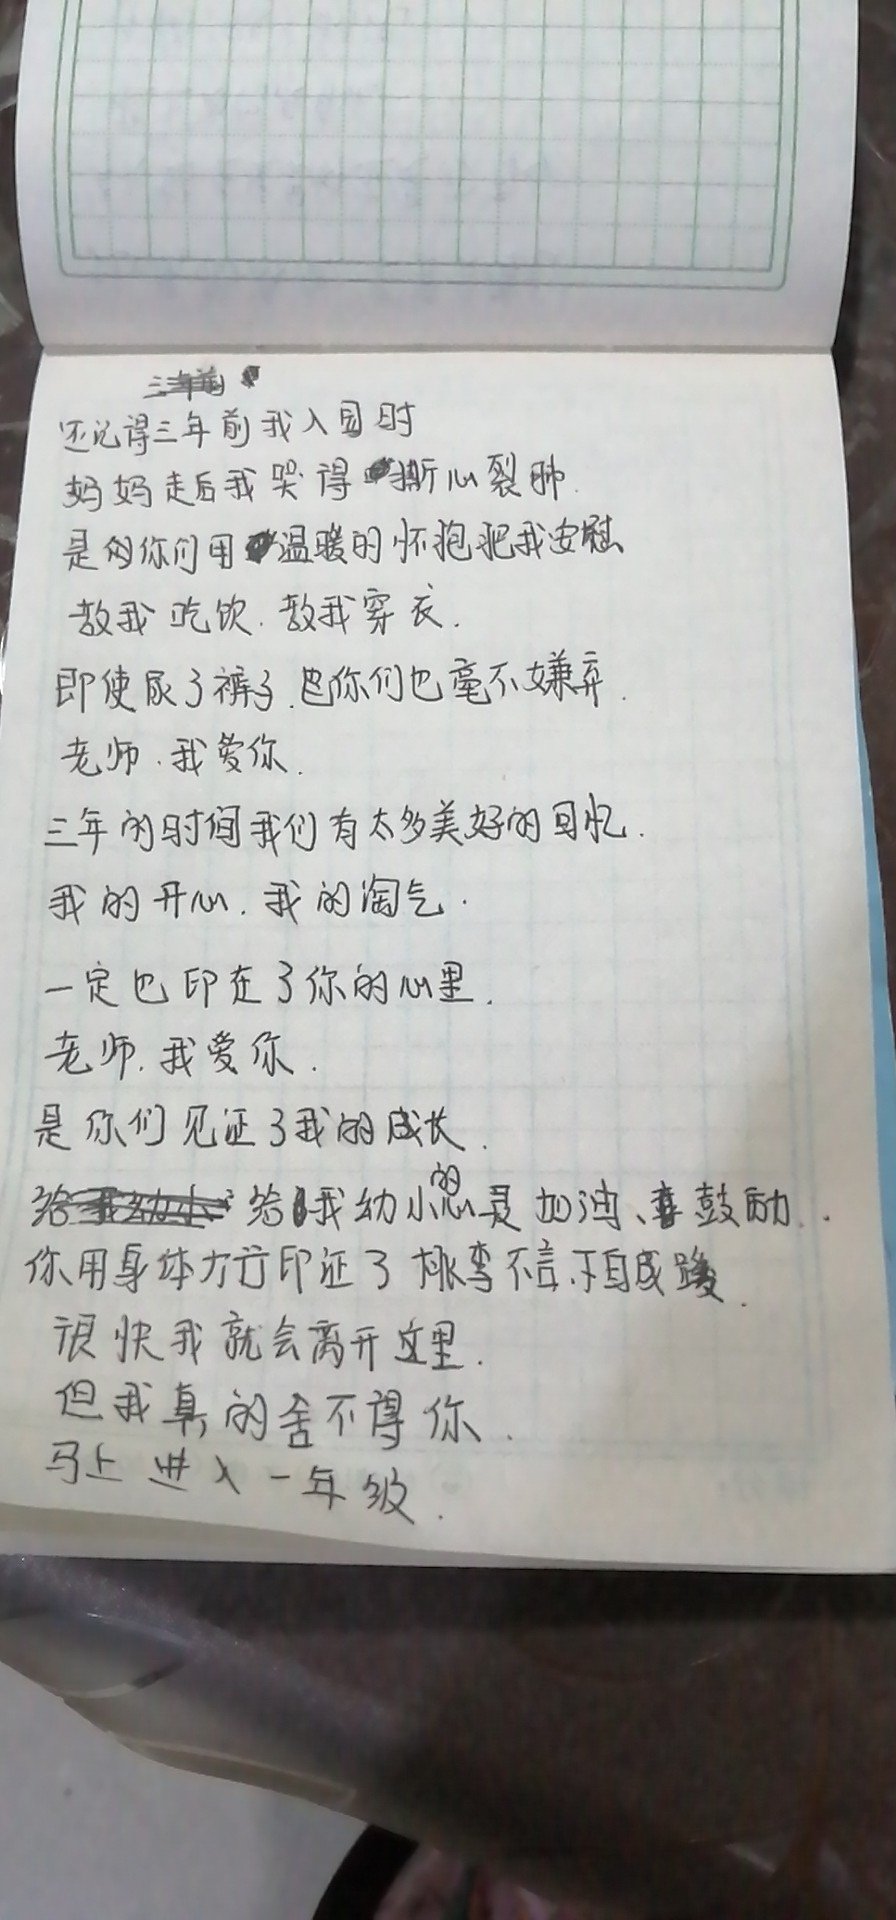 还记得三年前我入园时
妈妈走后我哭得撕心裂肺.
是你们用温暖的怀抱把我安慰
教我吃饮.教我穿衣.
即使尿了裤子.你们也毫不嫌弃.
老师.我爱你.
三年的时间我们有太多美好的回忆.
我的开心.我的淘气.
一定也印在了你的心里.
老师.我爱你.
是你们见证了我的成长.
给我幼小的心灵加油、鼓励..
你用身体力行印证了桃李不言.下自成蹊.
很快我就会离开这里.
但我真的舍不得你.
马上进入一年级.